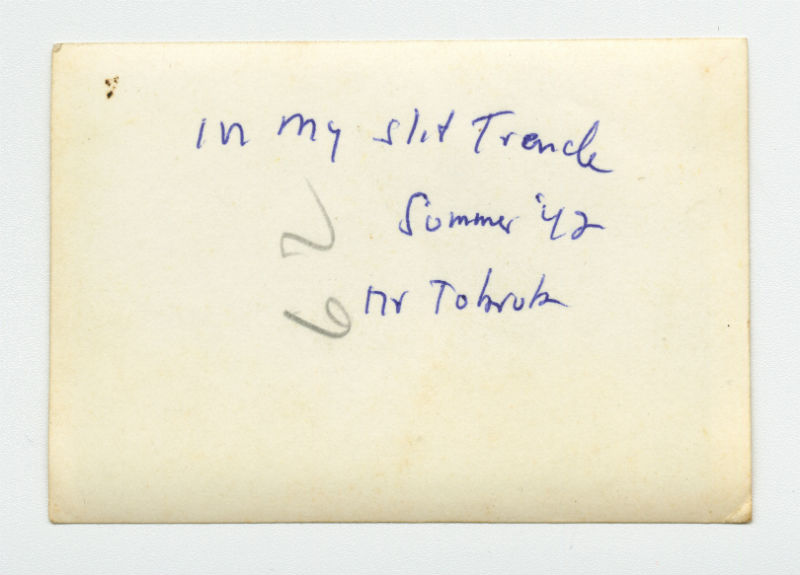 In my slit Trench
Summer '42
nr Tobruk
62